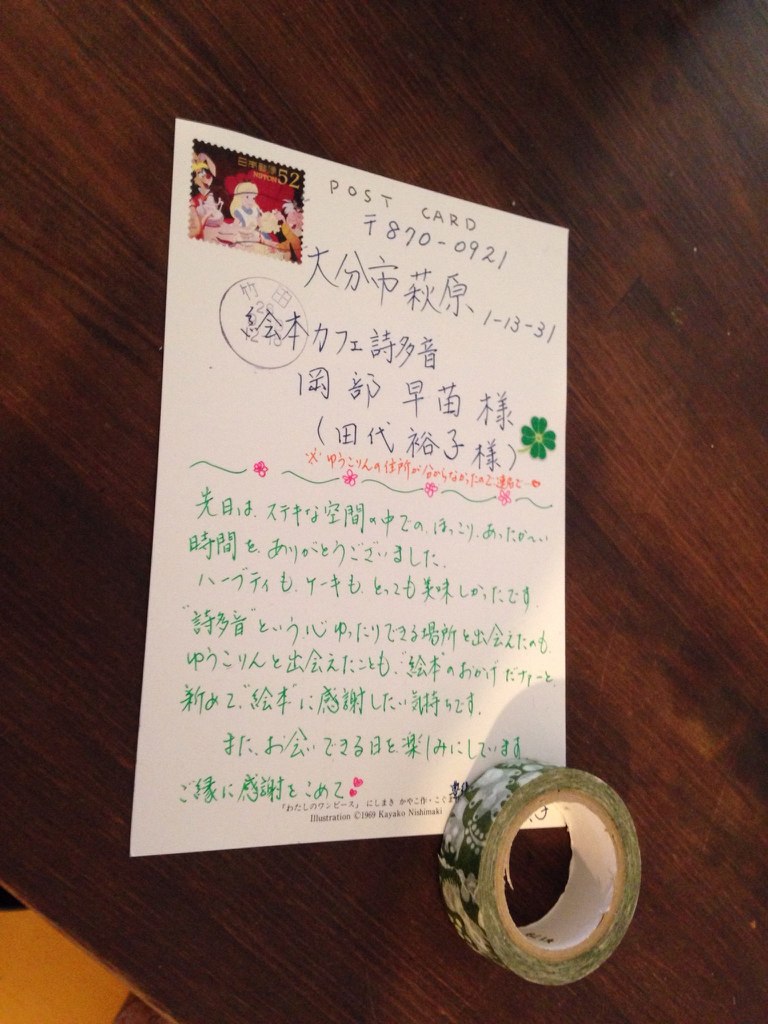 日本郵便
NIPPON 52
POST CARD
〒870-0921
大分市萩原 1-13-31
竹田
絵本カフェ詩多音
岡部早苗様
(田代裕子様)
※ゆうこりんの住所が分からなかったので連名で…♥
先日は、ステキな空間の中での、ほっこり、あったか〜い
時間を、ありがとうございました。
ハーブティも、ケーキも、とっても美味しかったです。
"詩多音"という心ゆったりできる場所と出会えたのも、
ゆうこりんと出会えたことも、"絵本"のおかげだナァーと、
新めて"絵本"に感謝したい気持ちです。
また、お会いできる日を楽しみにしています
ご縁に感謝をこめて
「わたしのワンピース」 にしまき かやこ作・こぐ
Illustration ©1969 Kayako Nishimaki